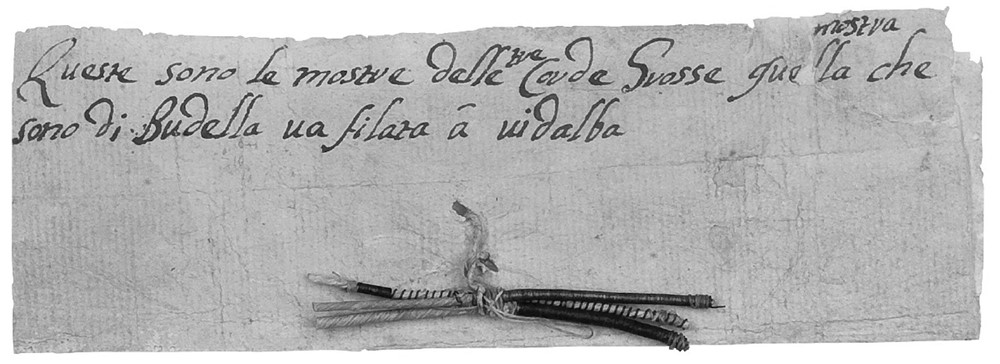 mostra
Queste sono le mostre delle tre Corde Grosse quella che
sono di Budella ua filata â uidalba